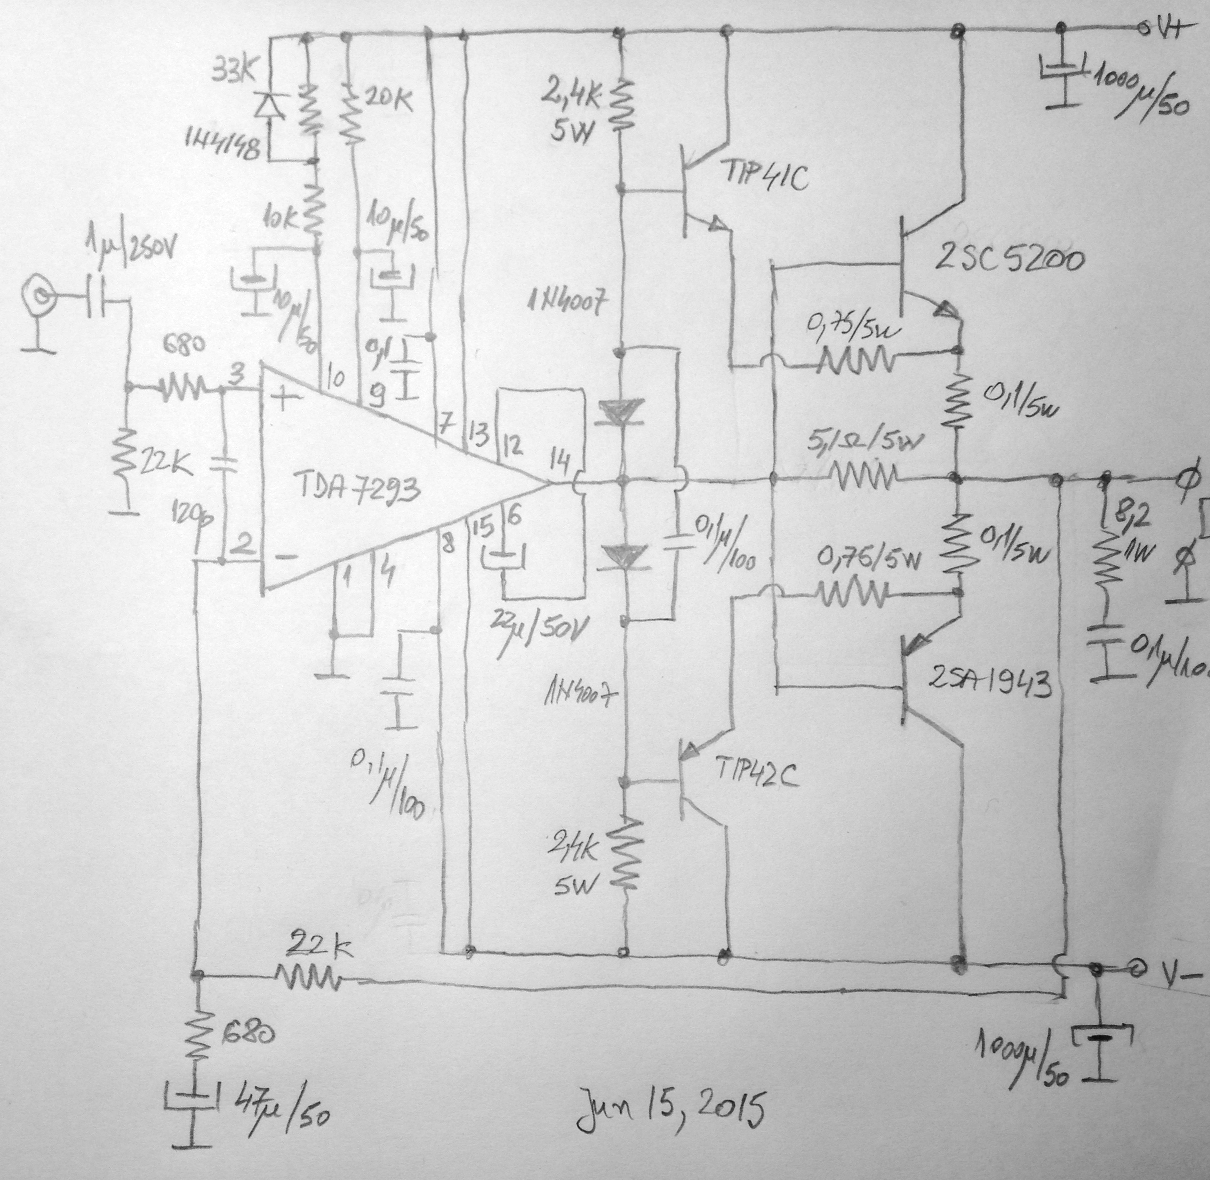 V+
33K
1N4148
20K
2,4K
5W
1000μ/50
TIP41C
10K
10μ/50
1μ/250V
2SC5200
10μ/50
1N4007
0,75/5W
680
3
10
9
0,1
+
7
13
12
14
0,1/5W
5,1Ω/5W
22K
TDA7293
120p
2
−
1
4
8
15
6
0,1μ/100
0,1/5W
0,75/5W
8,2
1W
22μ/50V
0,1μ/100
2SA1943
1N4007
TIP42C
0,1μ/100
2,4K
5W
22K
V−
680
1000μ/50
47μ/50
Jun 15, 2015